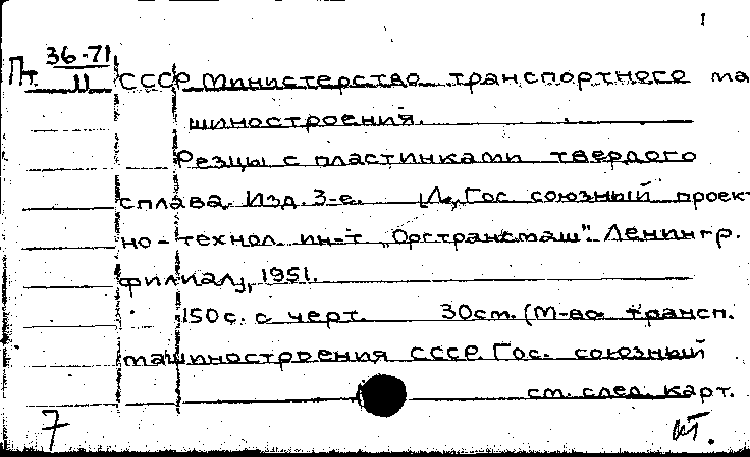 1
36-71
Пт. 11 СССР Министерство транспортного ма
шиностроения.
Резцы с пластинками твердого
сплава. Изд. 3-е. [Л., Гос. союзный проект
но-технол. ин-т "Оргтрансмаш". Ленингр.
филиал], 1951.
150 с. с черт. 30 см. (М-во трансп.
машиностроения СССР. Гос. союзный
см. след. карт.
7